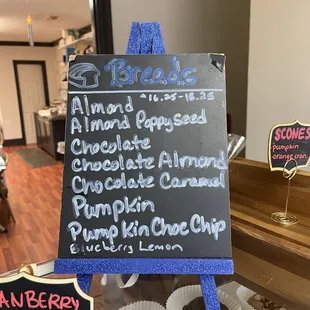 Breads
Almond $16.25-18.25
Almond Poppyseed
Chocolate
Chocolate Almond
Chocolate Caramel
Pumpkin
Pumpkin Choc Chip
Blueberry Lemon
SCONES
Pumpkin
orange cran
ANBERRY